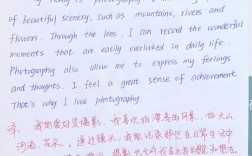 of beautiful scenery, such as mountains, rivers and
flowers. Through the lens, I can record the wonderful
moments that are easily overlooked in daily life.
Photography also allow me to express my feelings
and thoughts. I feel a great sense of achievement.
That's why I love photography.
我的爱好是摄影，我喜欢拍漂亮的风景，如大山
河流、花朵。通过镜头，我能记录那些在日常生活中